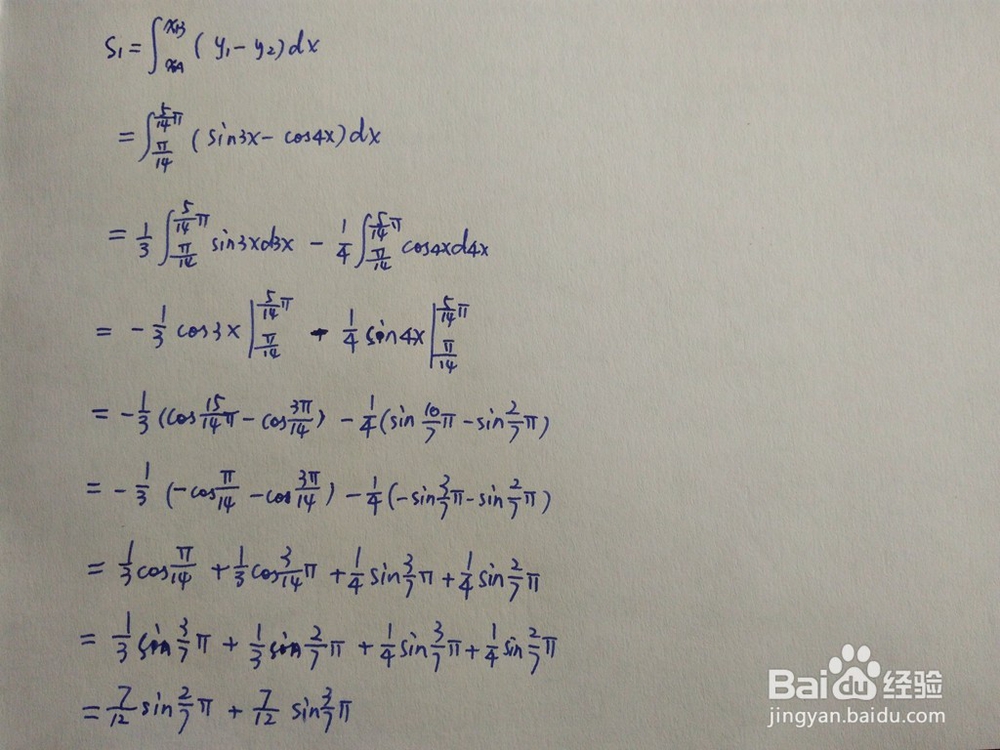 S₁ = ∫_{xA}^{xB} (y₁ - y₂) dx
= ∫_{π/14}^{5/14 π} (sin3x - cos4x) dx
= 1/3 ∫_{π/14}^{5/14 π} sin3x d3x - 1/4 ∫_{π/14}^{5/14 π} cos4x d4x
= - 1/3 cos3x |_{π/14}^{5/14 π} - 1/4 sin4x |_{π/14}^{5/14 π}
= - 1/3 (cos 15/14 π - cos 3π/14) - 1/4 (sin 10/7 π - sin 2/7 π)
= - 1/3 (-cos π/14 - cos 3π/14) - 1/4 (-sin 3/7 π - sin 2/7 π)
= 1/3 cos π/14 + 1/3 cos 3/14 π + 1/4 sin 3/7 π + 1/4 sin 2/7 π
= 1/3 sin 3/7 π + 1/3 sin 2/7 π + 1/4 sin 3/7 π + 1/4 sin 2/7 π
= 7/12 sin 2/7 π + 7/12 sin 3/7 π
Baidu 经验
jingyan.baidu.com